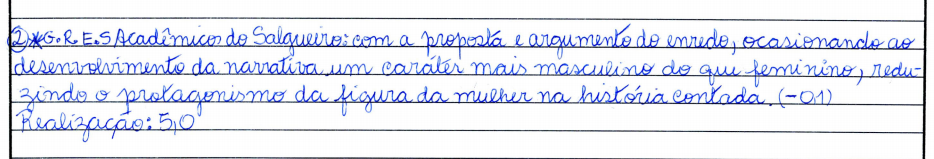 2)*G.R.E.S Acadêmicos do Salgueiro: com a proposta e argumento do enredo, ocasionando ao
desenvolvimento da narrativa um caráter mais masculino do que feminino, redu-
zindo o protagonismo da figura da mulher na história contada. (-0,1)
Realização: 5,0